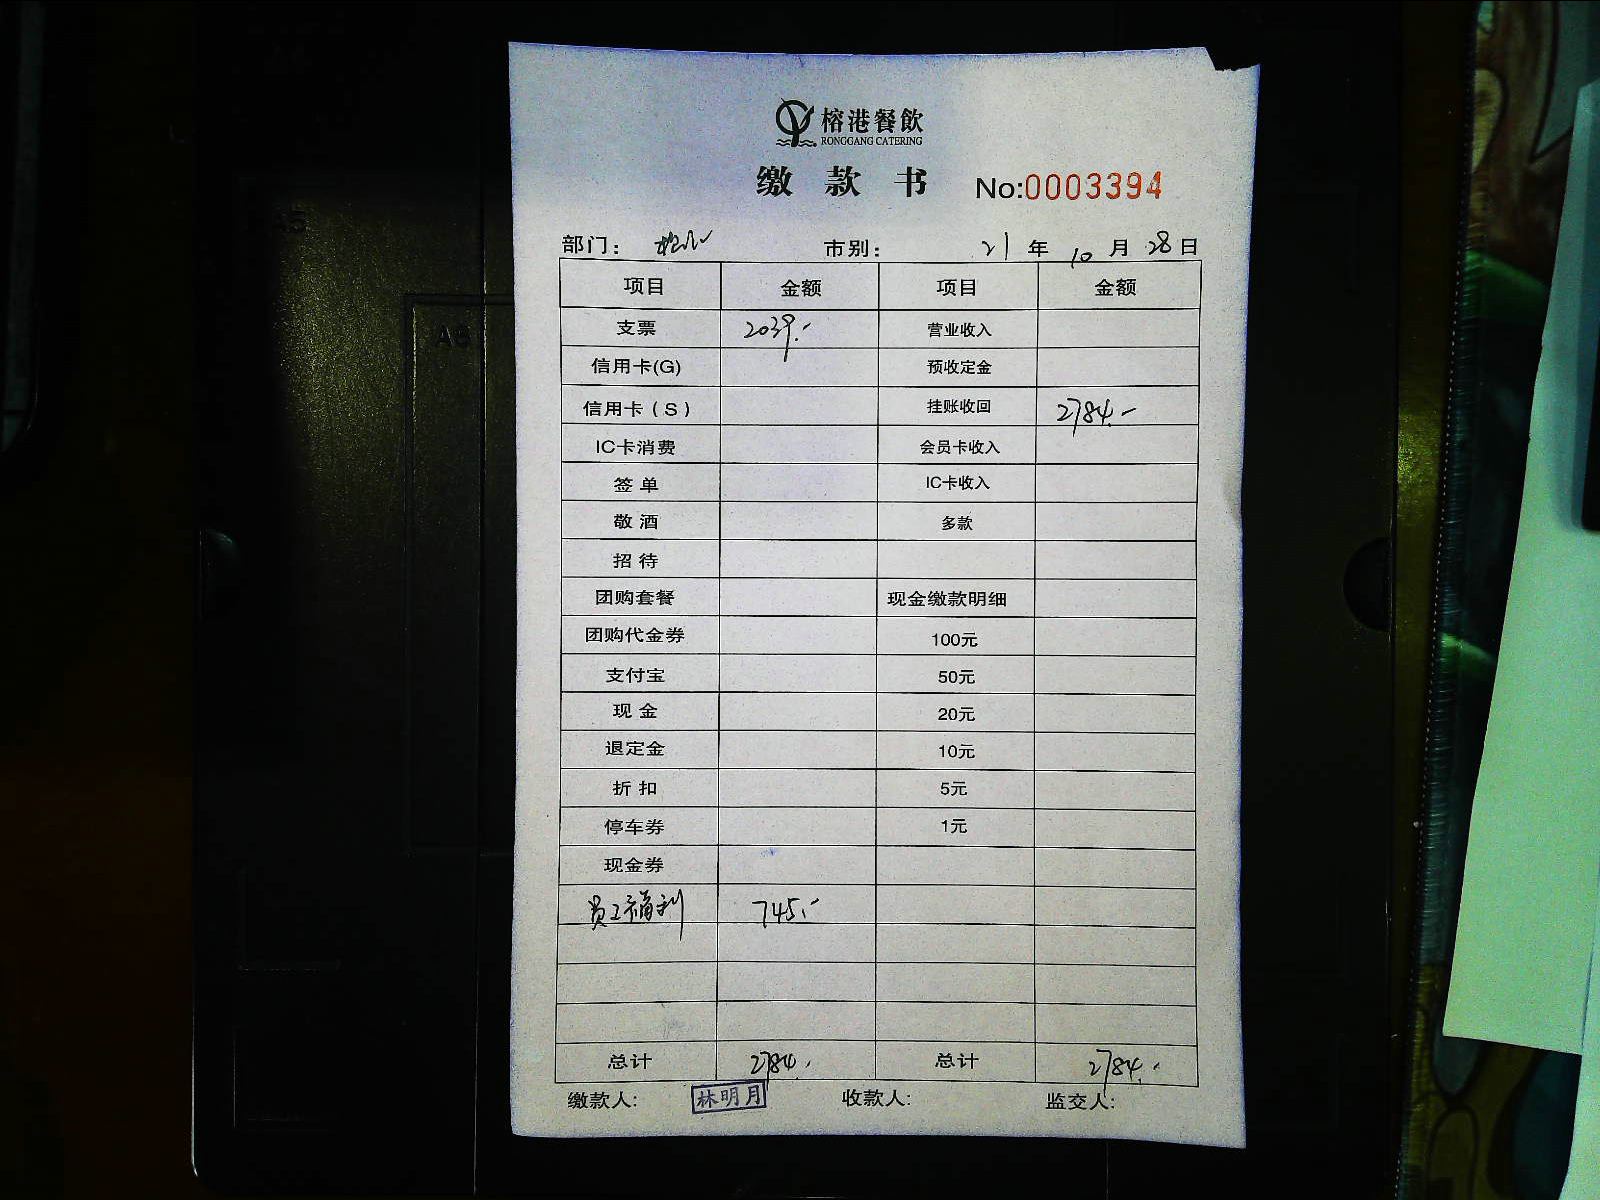 榕港餐飲
RONGGANG CATERING
缴款书 No:0003394
部门: 市别: 21年10月28日
项目 金额 项目 金额
支票 2039.- 营业收入
信用卡(G) 预收定金
信用卡(S) 挂账收回 2784.-
IC卡消费 会员卡收入
签单 IC卡收入
敬酒 多款
招待
团购套餐 现金缴款明细
团购代金券 100元
支付宝 50元
现金 20元
退定金 10元
折扣 5元
停车券 1元
现金券
员工福利 745.-
总计 2784.- 总计 2784.-
缴款人: 林明月 收款人: 监交人:
A5
A6